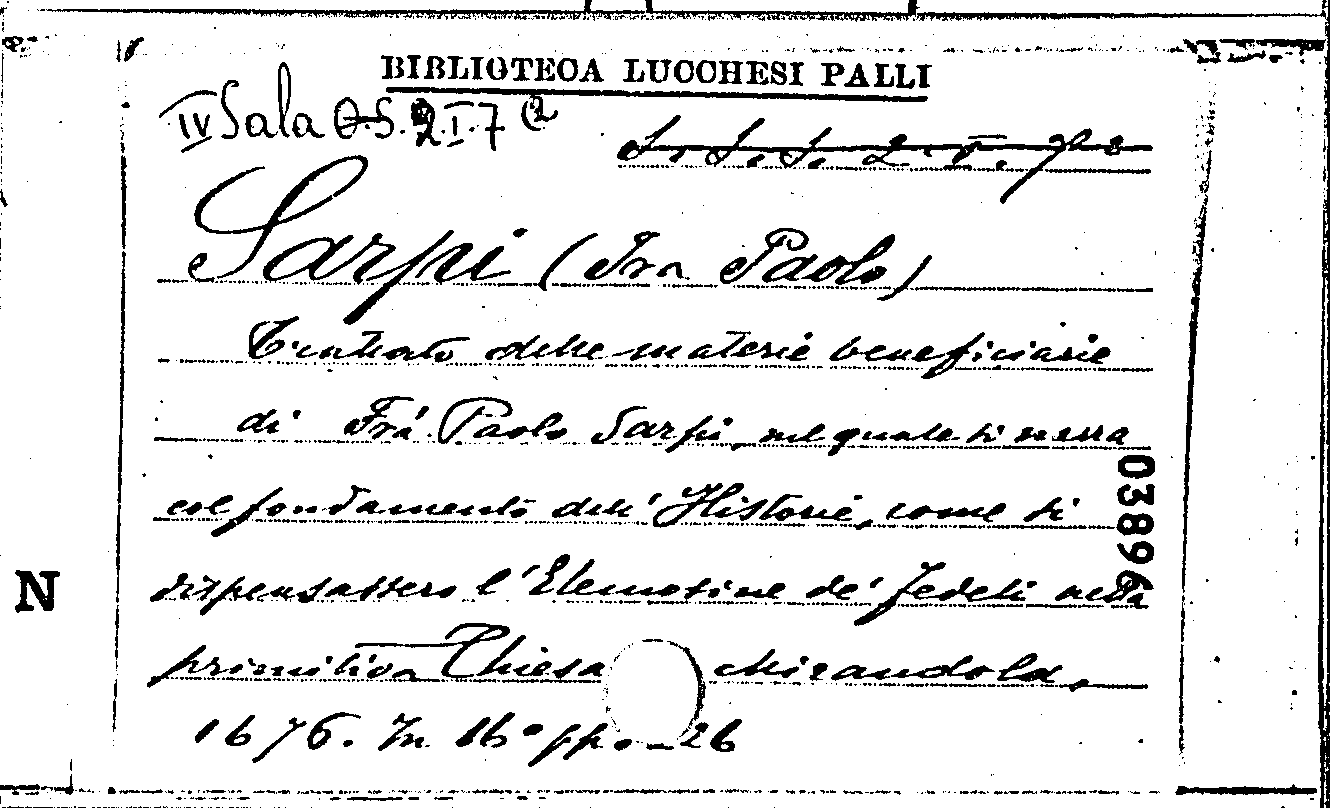 BIBLIOTECA LUCCHESI PALLI
IV Sala O.S. 2.I.7 (2
S. S. S. 2. V. 7 2
Sarpi (Fra Paolo)
Trattato delle materie beneficiarie
di Frá Paolo Sarpi, nel quale si narra
col fondamento dell' Historie, come si
03896
dispensassero l'Elemosine de' Fedeli nella
N
primitiva Chiesa Mirandola,
1676. In 16° pp. 26